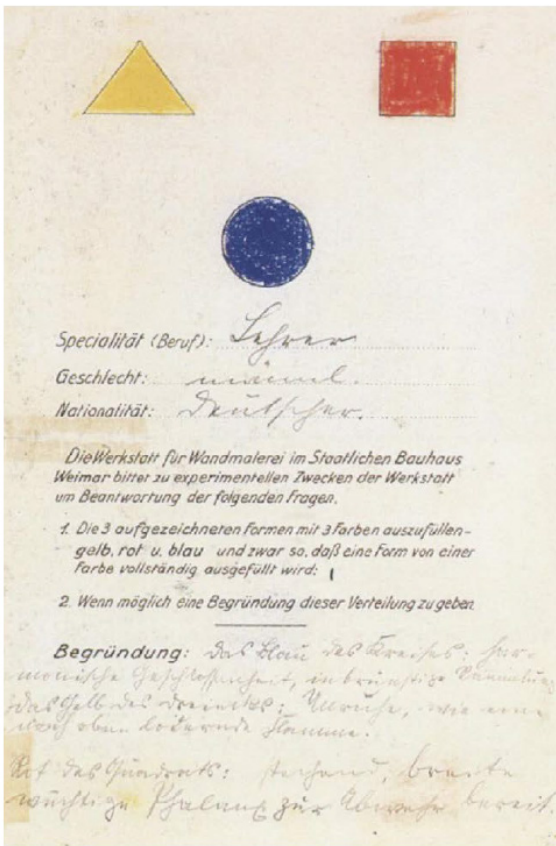 Specialität (Beruf): Lehrer
Geschlecht: männl.
Nationalität: Deutscher.
Die Werkstatt für Wandmalerei im Staatlichen Bauhaus
Weimar bittet zu experimentellen Zwecken der Werkstatt
um Beantwortung der folgenden Fragen.
1. Die 3 aufgezeichneten Formen mit 3 Farben auszufüllen-
gelb, rot u. blau und zwar so, daß eine Form von einer
Farbe vollständig ausgefüllt wird:
2. Wenn möglich eine Begründung dieser Verteilung zu geben
Begründung: Das Blau des Kreises: har-
monische Geschlossenheit, inbrünstige
Das Gelb des Dreiecks: Unruhe, wie eine
nach oben lodernde Flamme.
Rot des Quadrats: stehend, breite
wuchtige Phalanx zur Abwehr bereit.